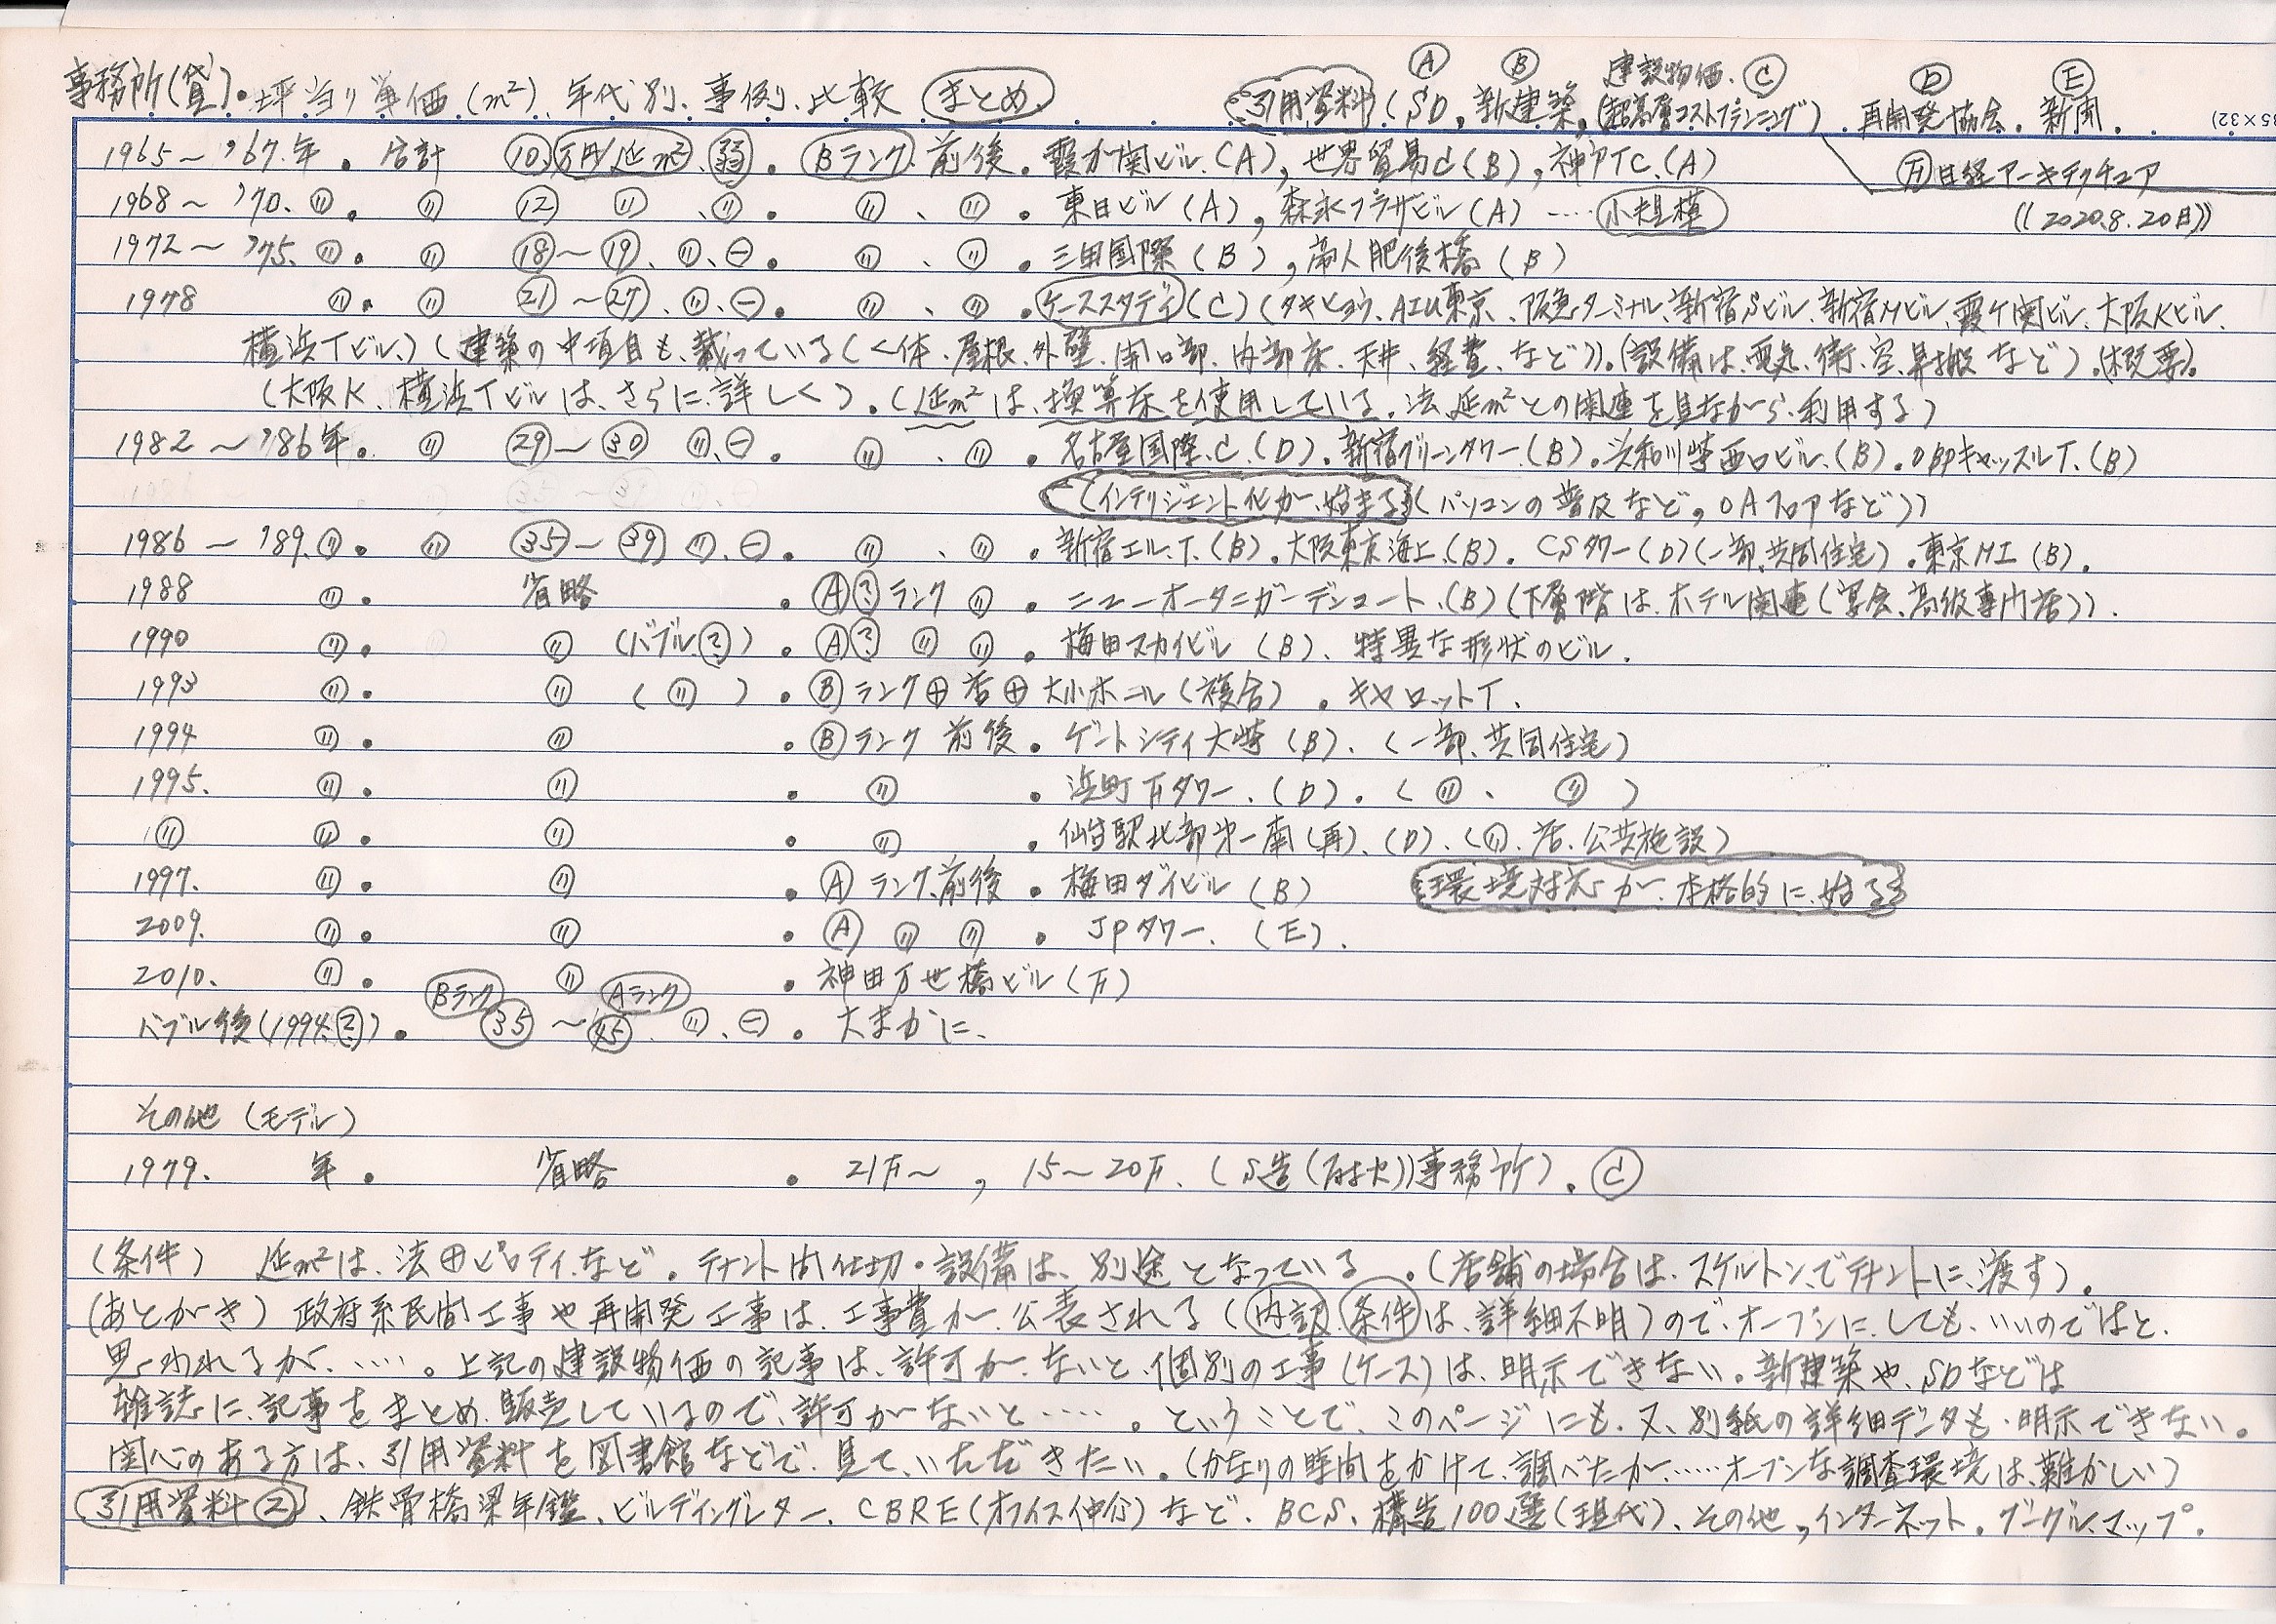 Ⓐ Ⓑ 建設物価. Ⓒ Ⓓ Ⓔ
事務所(貸)・坪当り単価(m²)、年代別、事例、比較 まとめ. 引用資料(SD, 新建築, (超高層コストプランニング), 再開発協会. 新聞.
1965〜'67.年. 合計 ⑩.万円/延m².弱. Bランク前後. 霞が関ビル.(A), 世界貿易C(B), 神戸TC.(A)
㋕日経アーキテクチュア
1968〜'70.〃. 〃 ⑫ 〃、〃. 〃、〃. 東日ビル(A), 森永プラザビル(A) ‥‥小規模
((2020.8.20日))
1972〜'75.〃. 〃 ⑱〜⑲.〃、㊀. 〃、〃. 三田国際(B), 帝人肥後橋(B)
1978 〃. 〃 ㉑〜㉗.〃、㊀. 〃、〃. ケーススタディ(C)(タキヒヨウ、AIU東京、阪急ターミナル、新宿Sビル、新宿Mビル、霞ケ関ビル、大阪Kビル、
横浜Tビル、)(建築の中項目も、載っている(く体、屋根、外壁、開口部、内部床、天井、経費、など)).(設備は、電気、衛、空、昇搬など).(概要).
(大阪K、横浜Tビルは、さらに、詳しく).(延m²は、換算床を使用している.法、延m²との関連を見ながら、利用する)
1982〜'86年. 〃 ㉙〜㉚ 〃、㊀. 〃、〃. 名古屋国際.C.(D).新宿グリーンタワー.(B).興和川崎西口ビル.(B).OBPキャッスルT.(B)
(インテリジェント化が、始まる(パソコンの普及など, OAフロアなど))
1986〜'89.〃. 〃 ㉟〜㊴ 〃、㊀. 〃、〃. 新宿エル.T.(B).大阪東京海上.(B). CSタワー(D)(一部、共同住宅).東京HI(B).
1988 〃. 省略 . Ⓐ?ランク 〃. ニューオータニガーデンコート.(B)(下層階は、ホテル関連(宴会、高級専門店)).
1990 〃. 〃 (バブル?). Ⓐ? 〃 〃. 梅田スカイビル(B)、特異な形状のビル.
1993 〃. 〃 (〃). Ⓑランク⊕店⊕大小ホール(複合). キャロットT.
1994 〃. 〃 . Ⓑランク前後. ゲートシティ大崎(B)、(一部、共同住宅)
1995. 〃. 〃 . 〃 . 浜町Fタワー.(D).(〃、〃)
〃 〃. 〃 . 〃 . 仙台駅北部第一南(再)、(D)、(〃、店、公共施設)
1997. 〃. 〃 . Ⓐランク、前後. 梅田ダイビル(B) 環境対応が、本格的に、始まる
2009. 〃. 〃 . Ⓐ 〃 〃 . JPタワー.(E).
2010. 〃. 〃 . 神田万世橋ビル(カ)
Bランク Aランク
バブル後(1994.?). ㉟〜㊺.〃、㊀. 大まかに、
その他(モデル)
1979. 年. 省略 . 21万〜, 15〜20万.(S造(耐火))事務所). Ⓒ
(条件) 延m²は、法⊕ピロティ、など. テナント間仕切・設備は、別途となっている .(店舗の場合は、スケルトン、でテナントに、渡す).
(あとがき) 政府系民間工事や再開発工事は、工事費が、公表される(内訳、条件は、詳細不明)ので、オープンに、しても、いいのではと、
思われるが、‥‥。上記の建設物価の記事は、許可が、ないと、個別の工事(ケース)は、明示できない。新建築や、SDなどは
雑誌に、記事をまとめ、販売しているので、許可がないと‥‥。ということで、このページにも、又、別紙の詳細データも、明示できない。
関心のある方は、引用資料を図書館などで、見て、いただきたい。(かなりの時間をかけて、調べたが、‥‥オープンな調査環境は、難かしい)
引用資料②、鉄骨橋梁年鑑、ビルディングレター、CBRE(オフィス仲介)など、BCS、構造100選(現代)、その他, インターネット. グーグルマップ.